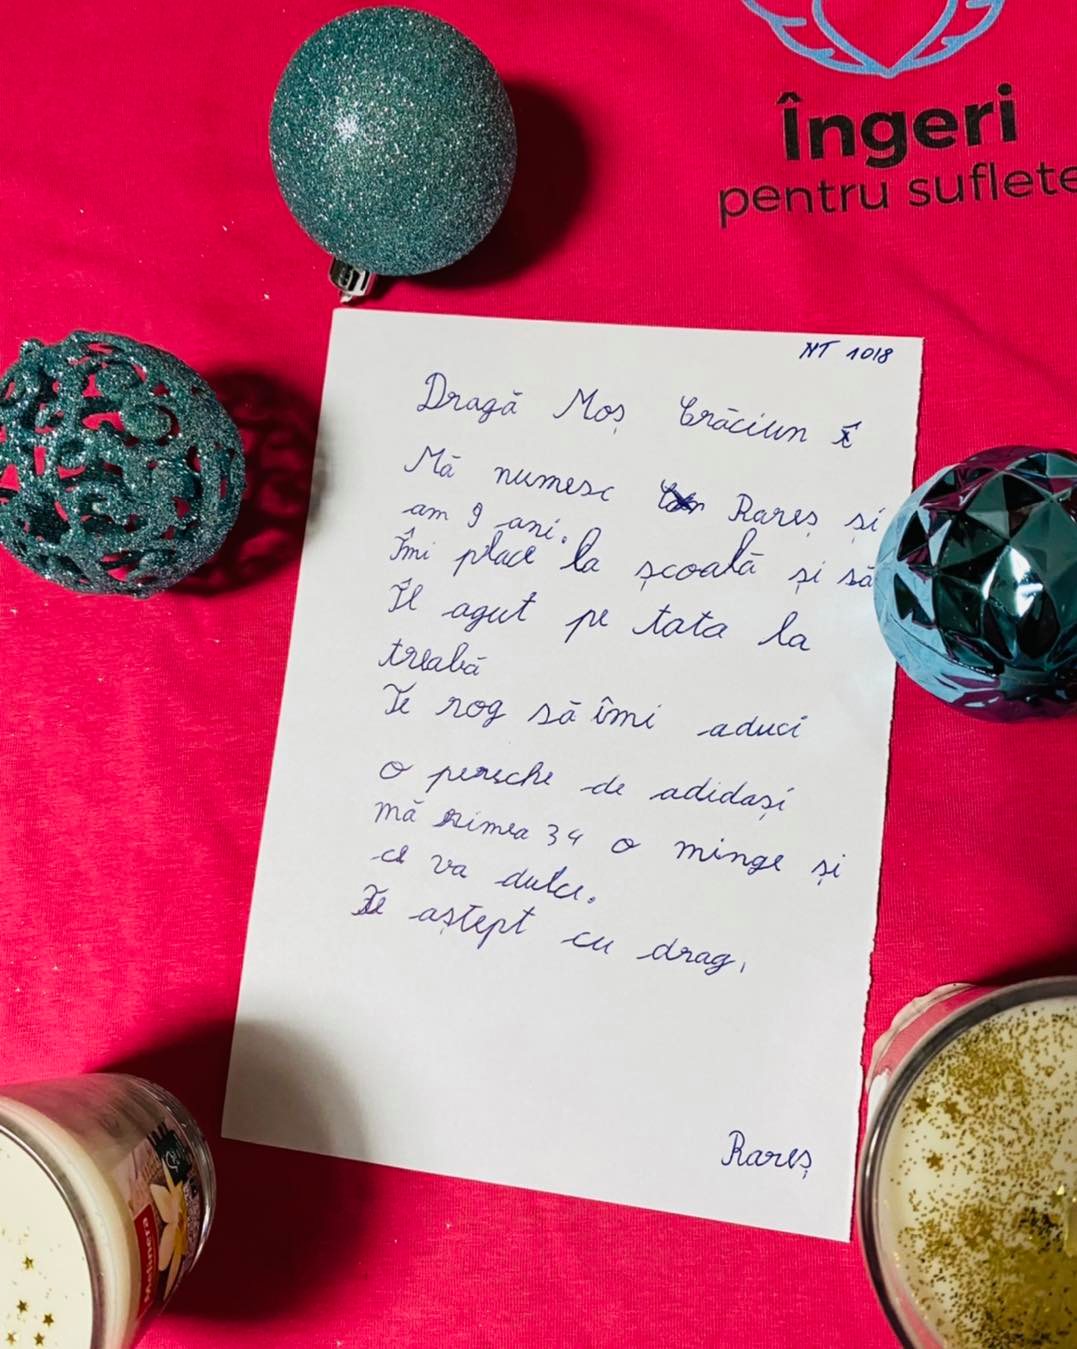 Îngeri
pentru suflete
NT 1018
Dragă Moș Crăciun
Mă numesc Rareș și
am 9 ani.
Îmi place la școală și să
Îl agut pe tata la
treabă
Te rog să îmi aduci
o pereche de adidași
mă rimea 34 o minge și
ce va dulce.
Te aștept cu drag,
Rareș
Melinera